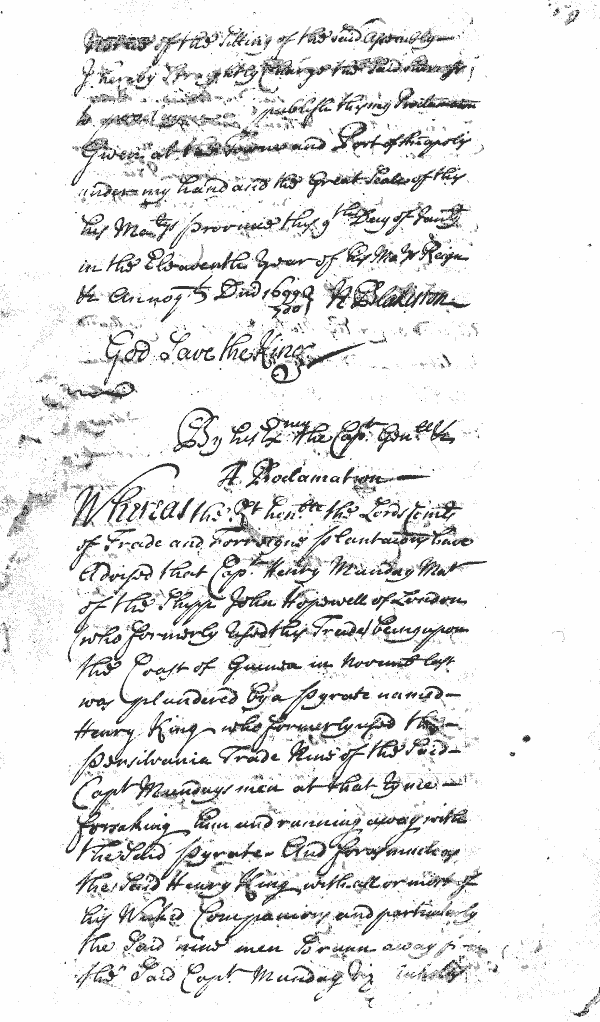 Notice of the Sitting of the said Assembly
I hereby Streightly Charge the Said
to publish this my Proclamation
Given at the Towne and Port of Anapolis
under my hand and the Great Seale of this
his Ma:tys Province this 9th Day of Janry
in the Eleaventh Year of his Ma:ts Reign
&c Annoq Dni 1699/700 N Blakiston
God Save the King
By his Exncy the Capt Genll &c
A Proclamation
Whereas the Rt honble the Lords Comrs
of Trade and Forreigne Plantacons have
Advised that Capt Henry Munday Mar
of the Shipp John Hopewell of London
who formerly Used this Trade being upon
the Coast of Guinea in Novemb last
was plundered by a Pyrate named
Henry King who formerly used the
Pensilvania Trade Nine of the Said
Capt Mundays men at that tyme
forsaking him and running away with
the Said Pyrate And forasmuch as
the Said Henry King with all or most of
his Wicked Companions and particularly
the Said nine men So runn away from
the Said Capt Munday